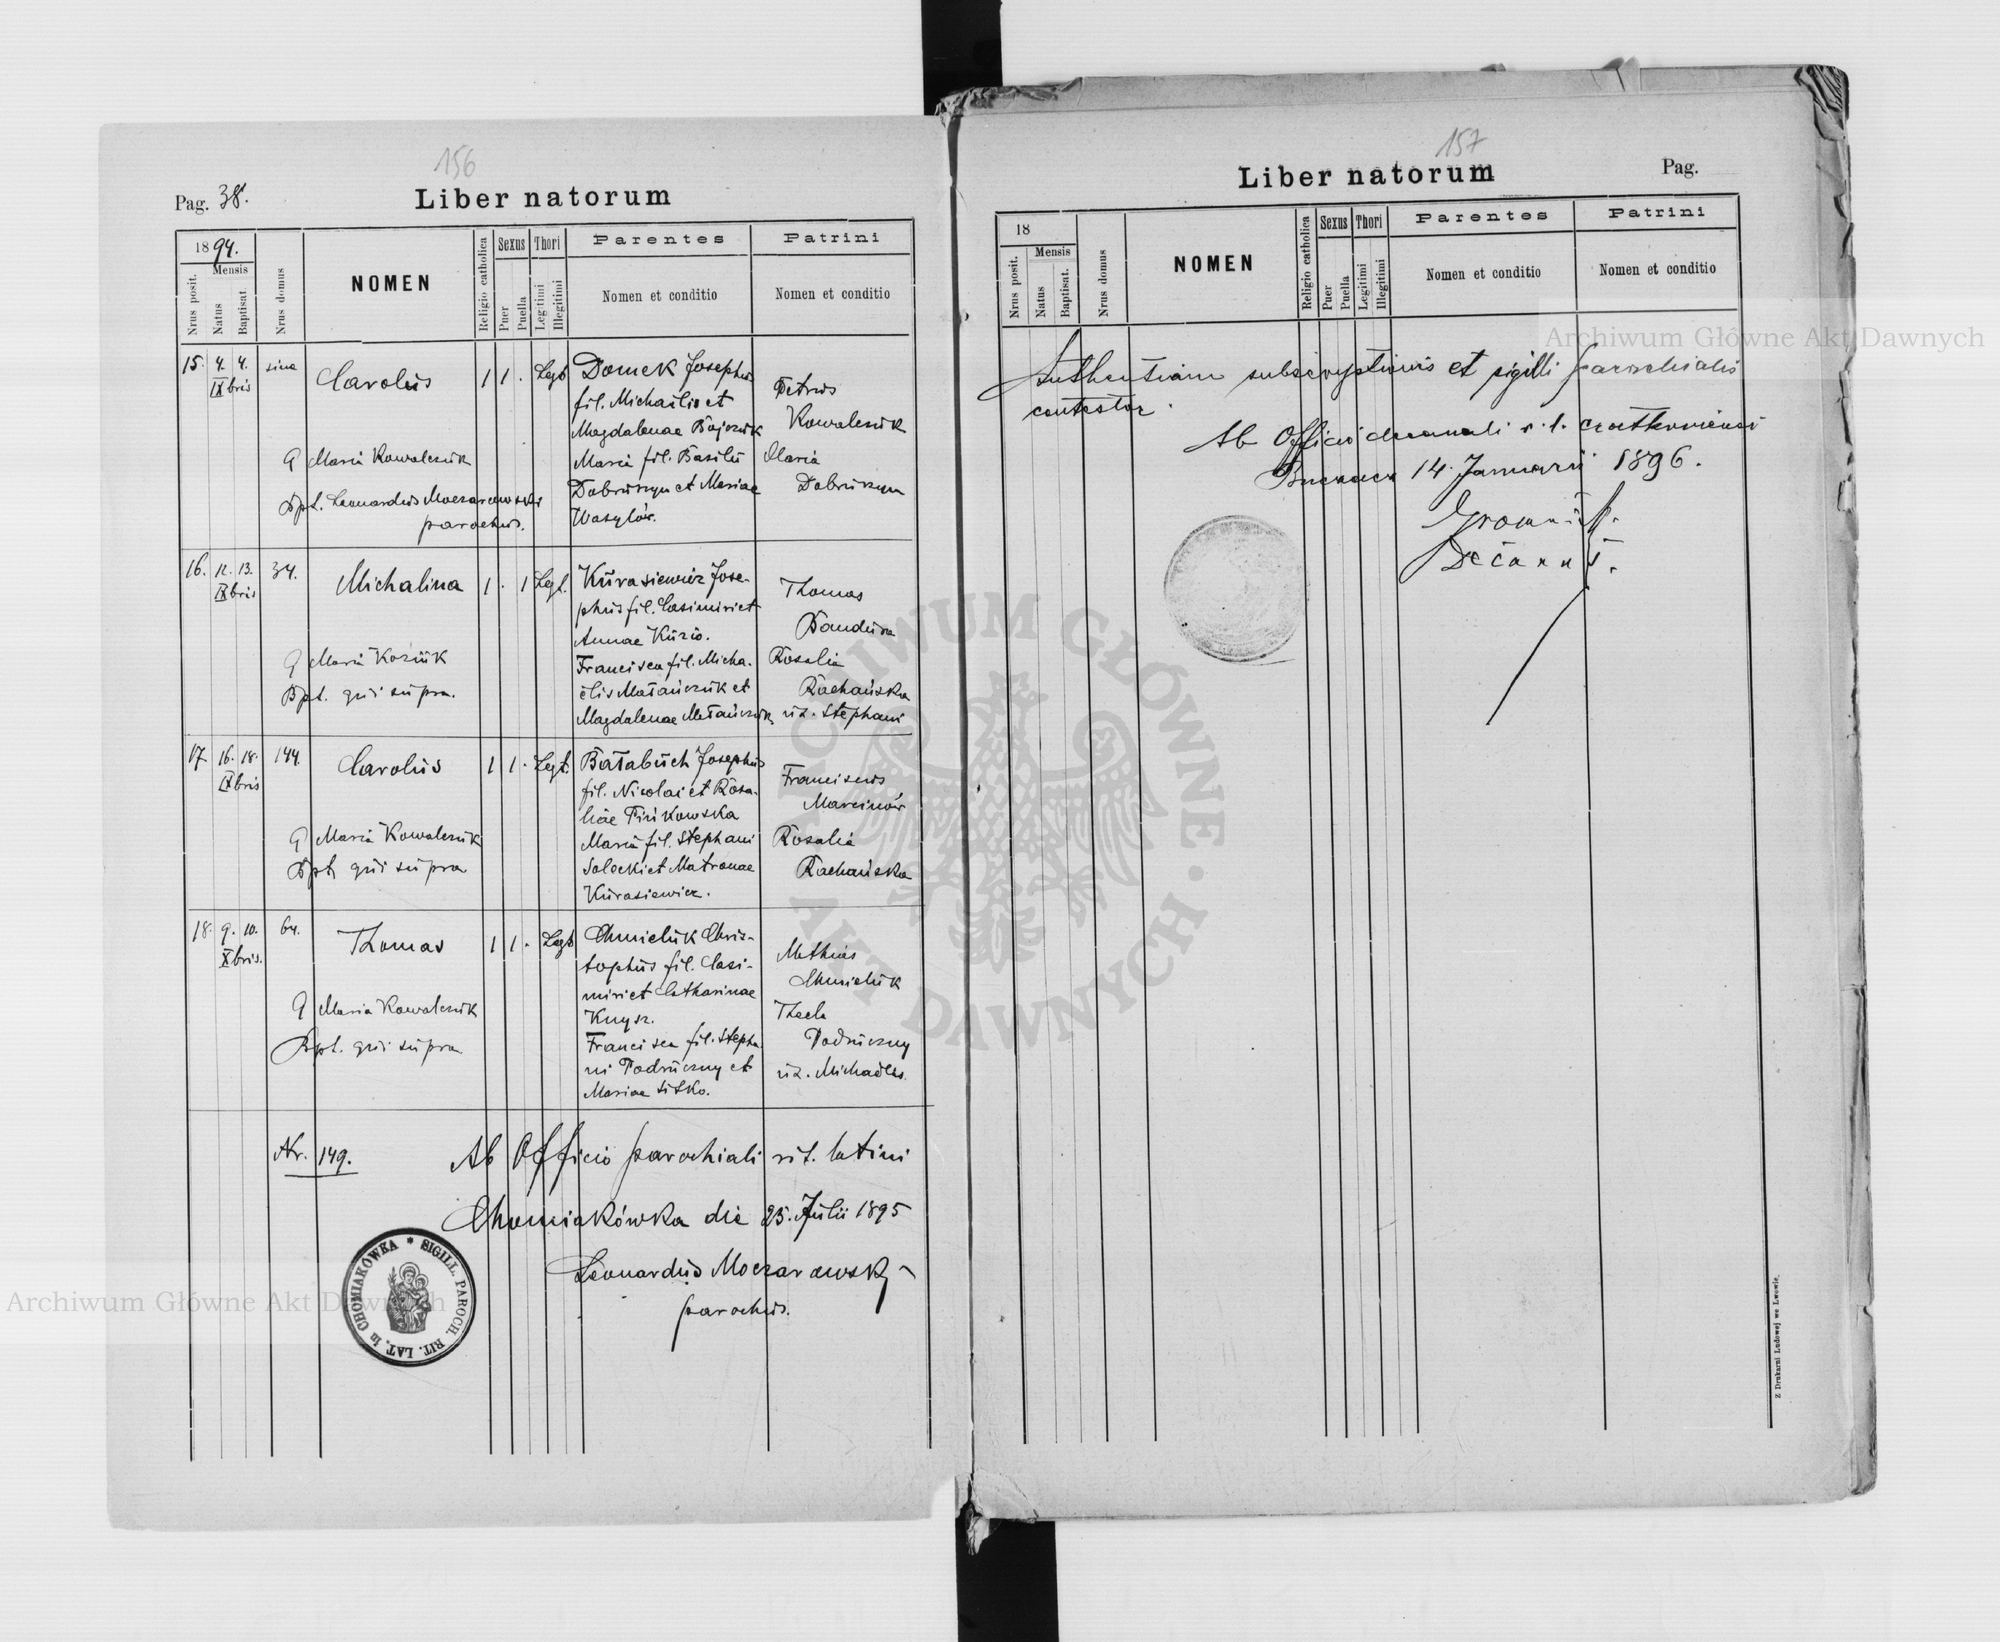 156
Pag. 38.
Liber natorum
1894.
Mensis
Nrus posit.
Natus
Baptisat.
Nrus domus
NOMEN
Religio catholica
Sexus
Puer
Puella
Thori
Legitimi
Illegitimi
Parentes
Nomen et conditio
Patrini
Nomen et conditio
15. 4. 4. sine Carolus 1 1 . Legt
IXbris
Domek Josephus
fil. Michaëlis et
Magdalenae Bojczuk
Maria fil. Basilii
Dobruszyn et Mariae
Wasylów.
Petrus
Kowalczuk
Maria
Dobruszyn
Maria Kowalczuk
Bpt. Leonardus Moczarowski
parochus.
16. 12. 13. 34. Michalina 1 . 1 Legt.
IXbris
Kurasiewicz Jose-
phus fil. Casimiri et
Annae Kuzio.
Francisca fil. Micha-
ëlis Matańczuk et
Magdalenae Matańczuk
Thomas
Bandura
Rosalia
Rachańska
ux. Stephani
Maria Koziuk
Bpt. qui supra.
17 16. 18. 144. Carolus 1 1 . Legt.
IXbris
Bałabuch Josephus
fil. Nicolai et Rosa-
liae Firikowska
Maria fil. Stephani
Solecki et Matronae
Kurasiewicz.
Franciscus
Marcinów
Rosalia
Rachańska
Maria Kowalczuk
Bpt. qui supra
18. 9. 10. 64. Thomas 1 1 . Legt
Xbris.
Chmieluk Chris-
tophus fil. Casi-
miri et Catharinae
Knysz.
Francisca fil. Stepha-
ni Podruczny et
Mariae Sitko.
Mathias
Chmieluk
Thecla
Podruczny
ux. Michaëlis
Maria Kowalczuk
Bpt. qui supra
Nr. 149.
Ab Officio parochiali rit. latini
Chomiakówka die 25. Julii 1895
Leonardus Moczarowski
parochus.
* SIGILL. PAROCH. RIT. LAT. in CHOMIAKÓWKA
157
Liber natorum
Pag.
18
Mensis
Nrus posit.
Natus
Baptisat.
Nrus domus
NOMEN
Religio catholica
Sexus
Puer
Puella
Thori
Legitimi
Illegitimi
Parentes
Nomen et conditio
Patrini
Nomen et conditio
Authentiam subscriptionis et sigilli parochialis
contestor.
Ab Officio decanali r. l. czortkoviensi
Buczacz 14. Januarii 1896.
Gromnicki
Decanus.
Z Drukarni Ludowej we Lwowie.
Archiwum Główne Akt Dawnych
Archiwum Główne Akt Dawnych
ARCHIWUM GŁÓWNE · AKT DAWNYCH ·